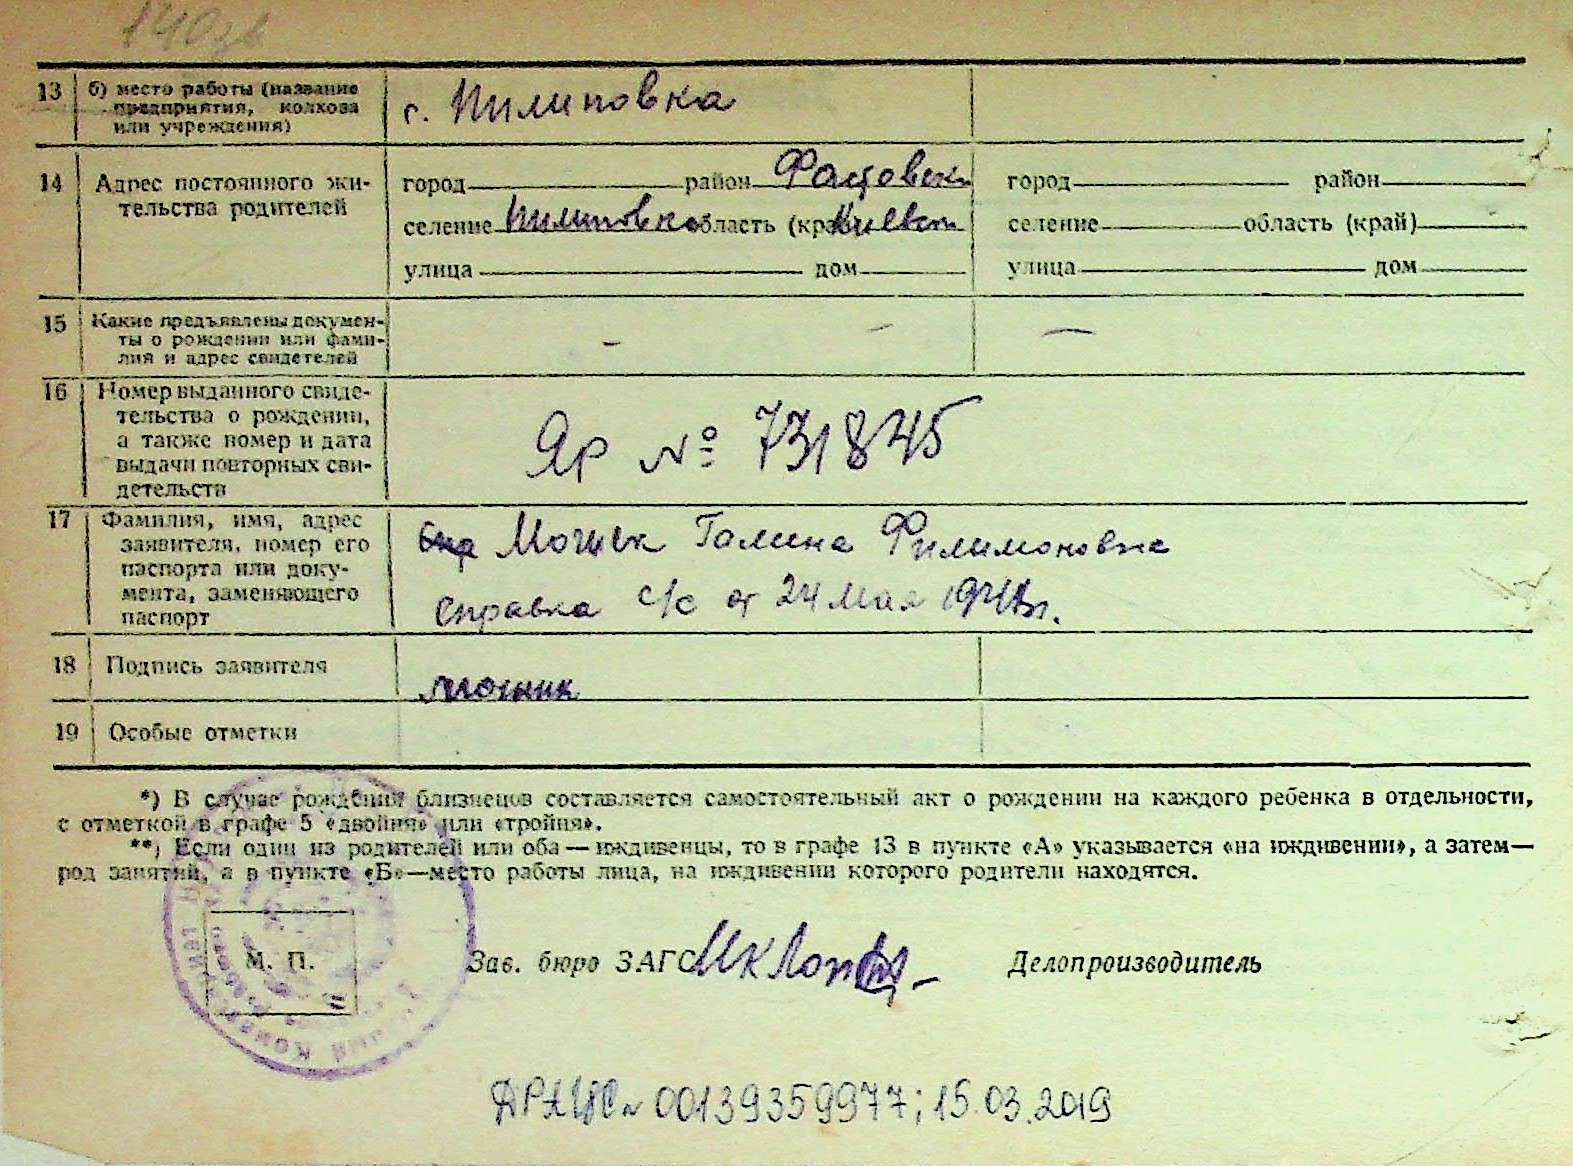 140зв
13 б) место работы (название предприятия, колхоза или учреждения) с. Пилиповка
14 Адрес постоянного жительства родителей
город район Фастовск город район
селение Пилиповка область (край) Киевск селение область (край)
улица дом улица дом
15 Какие предъявлены документы о рождении или фамилия и адрес свидетелей - - -
16 Номер выданного свидетельства о рождении, а также номер и дата выдачи повторных свидетельств Яр № 731845
17 Фамилия, имя, адрес заявителя, номер его паспорта или документа, заменяющего паспорт
Галина Филимоновна
справка с/с от 24 мая
18 Подпись заявителя
19 Особые отметки
*) В случае рождения близнецов составляется самостоятельный акт о рождении на каждого ребенка в отдельности,
с отметкой в графе 5 «двойня» или «тройня».
**) Если один из родителей или оба — иждивенцы, то в графе 13 в пункте «А» указывается «на иждивении», а затем—
род занятий, а в пункте «Б»—место работы лица, на иждивении которого родители находятся.
М. П. Зав. бюро ЗАГС Делопроизводитель
ДРАЦС № 00139359977; 15.03.2019